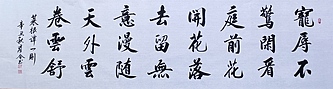 寵辱不
驚閑看
庭前花
開花落
去留無
意漫隨
天外雲
卷雲舒
菜根譚一則